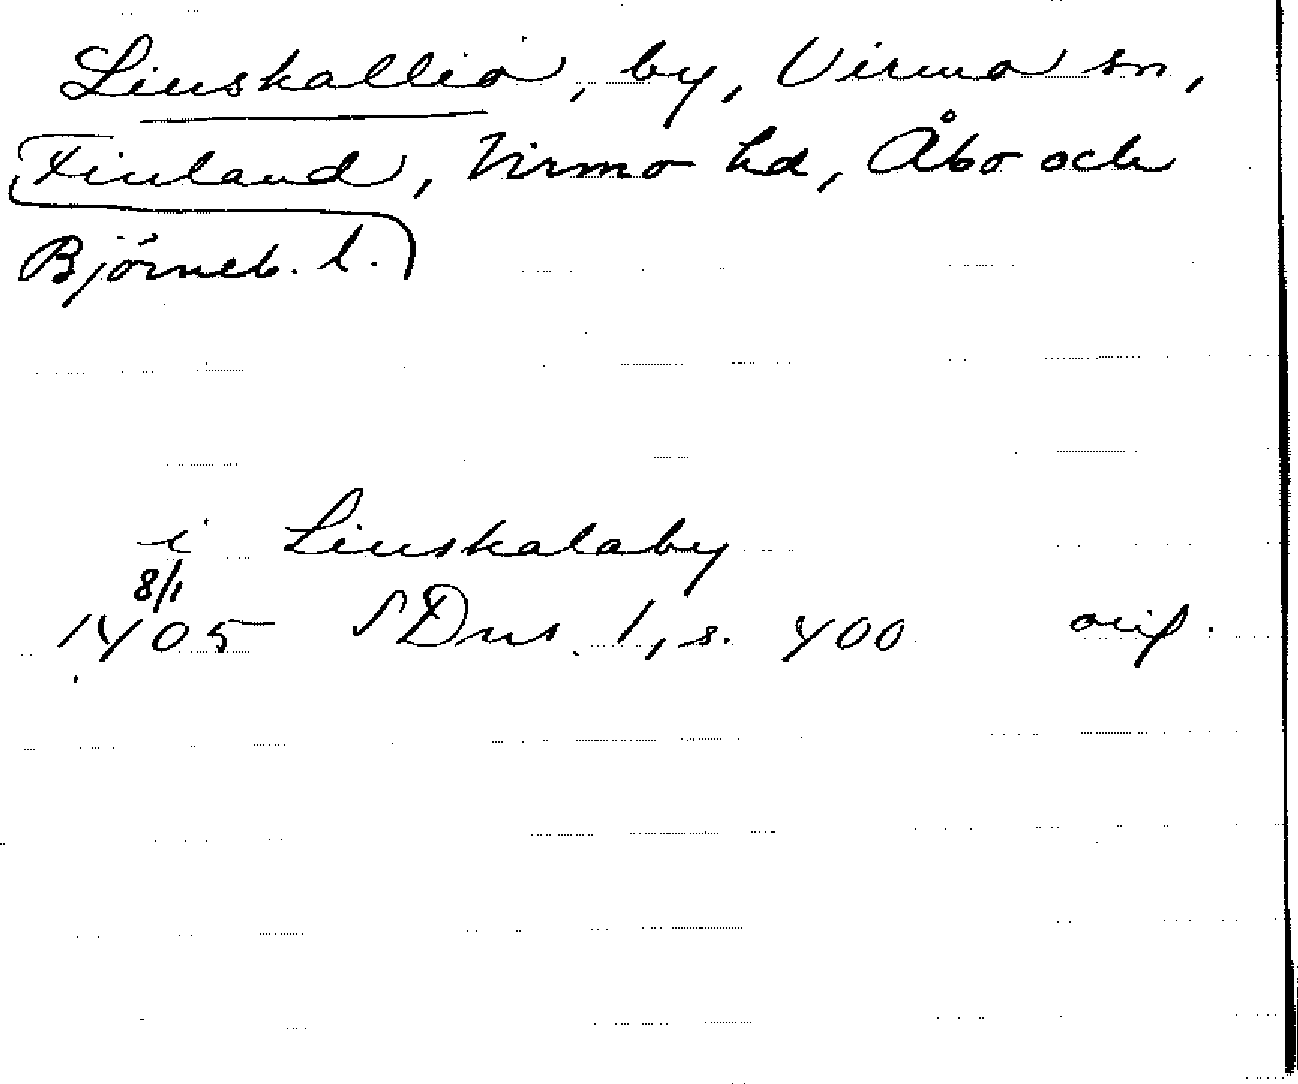 Linskallio, by, Virmo sn,
Finland, Virmo hd, Åbo och
Björneb. l.
i Linskalaby
8/1
1405 SDns 1, s. 400 orig.